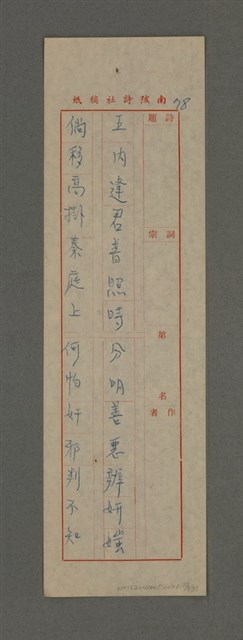 南陔詩社稿紙
78
詩題
詞宗
第 名
作者
五內逢君普照時分明善惡辨妍媸
倘移高掛秦庭上何怕奸邪判不知